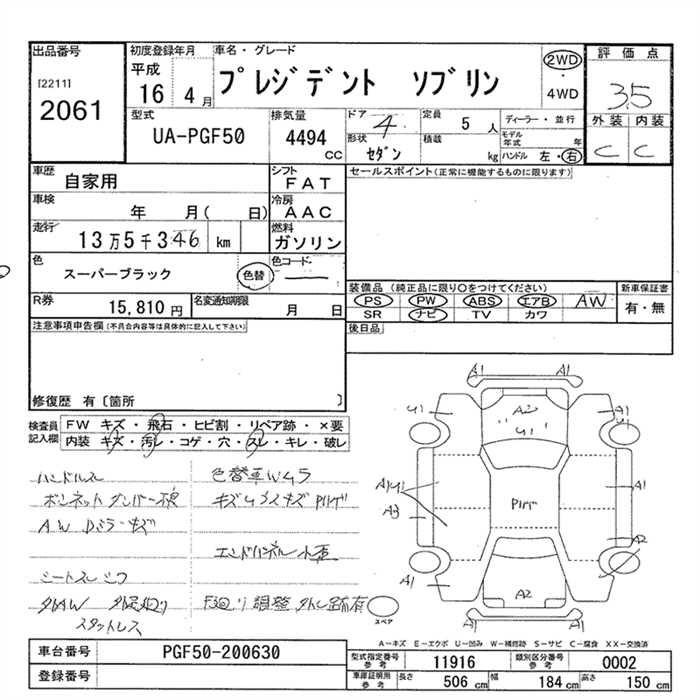 出品番号
[2211]
2061
初度登録年月
平成
16 4 月
車名・グレード
プレジデント ソブリン
2WD
・
4WD
評価点
3.5
外装 内装
C C
型式
UA-PGF50
排気量
4494
cc
ドア
4
形状
セダン
定員
5 人
積載
kg
ディーラー・並行
モデル年式 年
ハンドル 左・右
車歴
自家用
シフト
FAT
セールスポイント(正常に機能するものに限ります)
車検
年 月( 日)
冷房
AAC
走行
13万5千346 km
燃料
ガソリン
色
スーパーブラック
色替
色コード
R券
15,810 円
名変通知期限
月 日
装備品(純正品に限り〇をつけてください)
PS PW ABS エアB AW
SR ナビ TV カワ
新車保証書
有・無
後日品
注意事項申告欄(不具合内容等は具体的に記入して下さい)
修復歴 有〔箇所 〕
検査員記入欄
FW キズ・飛石・ヒビ割・リペア跡・×要
内装 キズ・汚レ・コゲ・穴・スレ・キレ・破レ
ハンドルスレ
色替車Wムラ
AW Dミラーキズ
エンドパネル小歪
シートスレシワ
スタットレス
A1 A1
U1 A2 A1
U1
A1U1 A1
Pハゲ
A3
A2
A1
A2
A1 A1
スペア
A-キズ E-エクボ U-凹み W-補修跡 S-サビ C-腐食 XX-交換済
車台番号
PGF50-200630
登録番号
型式指定番号
参考
11916
類別区分番号
参考
0002
車庫証明用
参考
長さ
506 cm
幅
184 cm
高さ
150 cm